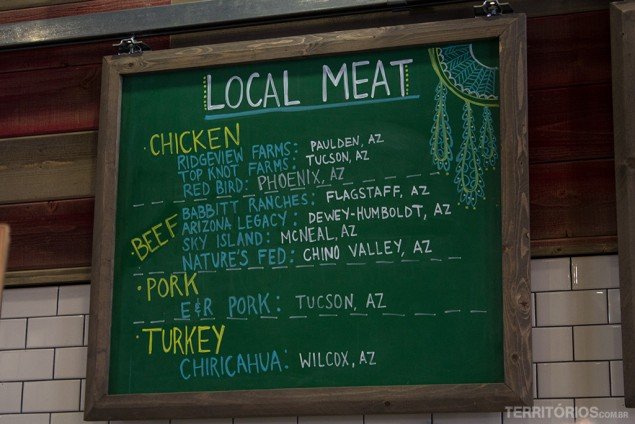 LOCAL MEAT
· CHICKEN
RIDGEVIEW FARMS: PAULDEN, AZ
TOP KNOT FARMS: TUCSON, AZ
RED BIRD: PHOENIX, AZ
· BEEF
BABBITT RANCHES: FLAGSTAFF, AZ
ARIZONA LEGACY: DEWEY-HUMBOLDT, AZ
SKY ISLAND: MCNEAL, AZ
NATURE'S FED: CHINO VALLEY, AZ
· PORK
E&R PORK: TUCSON, AZ
· TURKEY
CHIRICAHUA: WILCOX, AZ
TERRITÓRIOS.COM.BR